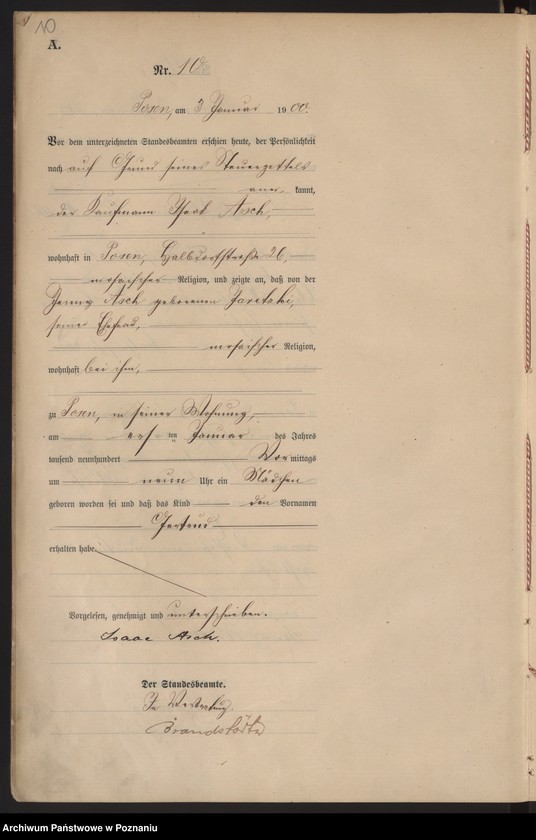 10
A.
Nr. 10
Posen, am 3 Januar 1900.
Vor dem unterzeichneten Standesbeamten erschien heute, der Persönlichkeit
nach auf Grund seines Steuerzettels
aner kannt,
der Kaufmann Asch,
wohnhaft in Posen, Halbdorfstraße 26,
mosaischer Religion, und zeigte an, daß von der
Jenny Asch geborenen
seiner Ehefrau,
mosaischer Religion,
wohnhaft bei ihm,
zu Posen, in seiner Wohnung,
am ersten Januar des Jahres
tausend neunhundert Vor mittags
um neun Uhr ein Mädchen
geboren worden sei und daß das Kind den Vornamen
Gertrud
erhalten habe.
Vorgelesen, genehmigt und unterschrieben.
Isaac Asch.
Der Standesbeamte.
In Vertretung
Archiwum Państwowe w Poznaniu